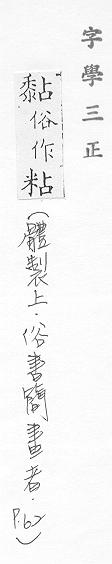 字學三正
黏俗作粘
(體製上.俗書簡畫者.P.62)